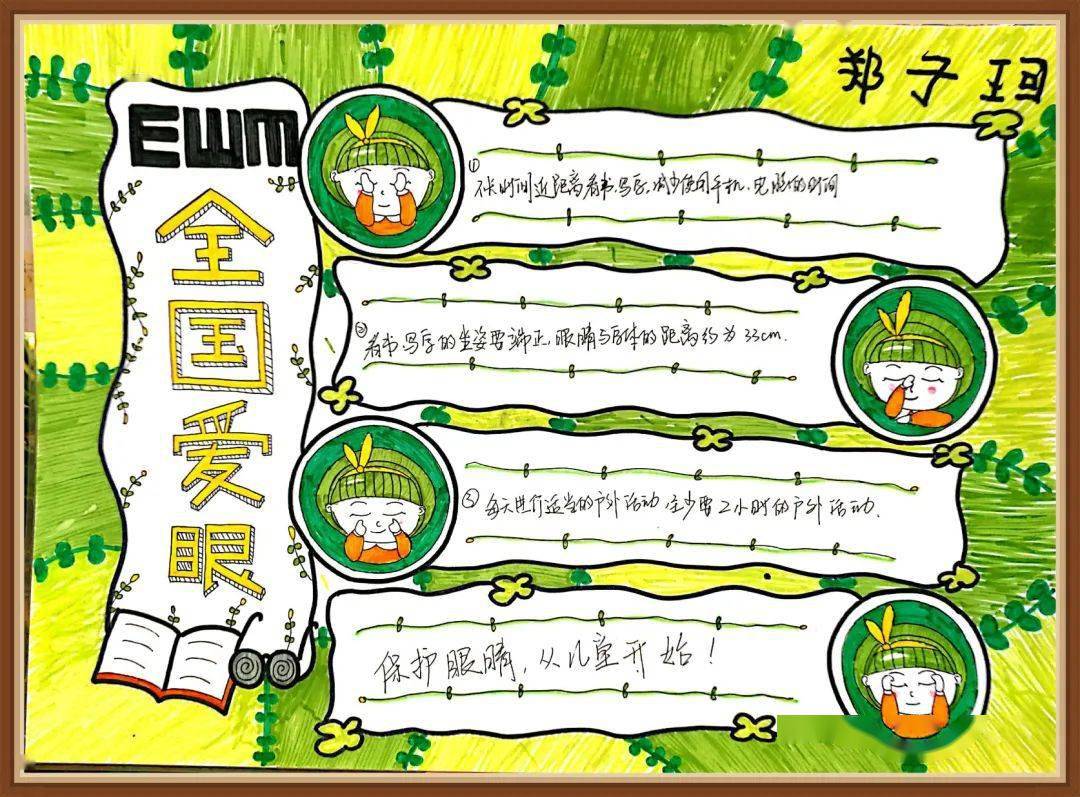 郑子珇
EWM
全国爱眼
①
不长时间近距离看书写字,减少使用手机、电脑的时间
②
看书写字的坐姿要端正,眼睛与书本的距离约为33cm.
③
每天进行适当的户外活动,至少要2小时的户外活动.
保护眼睛,从儿童开始!